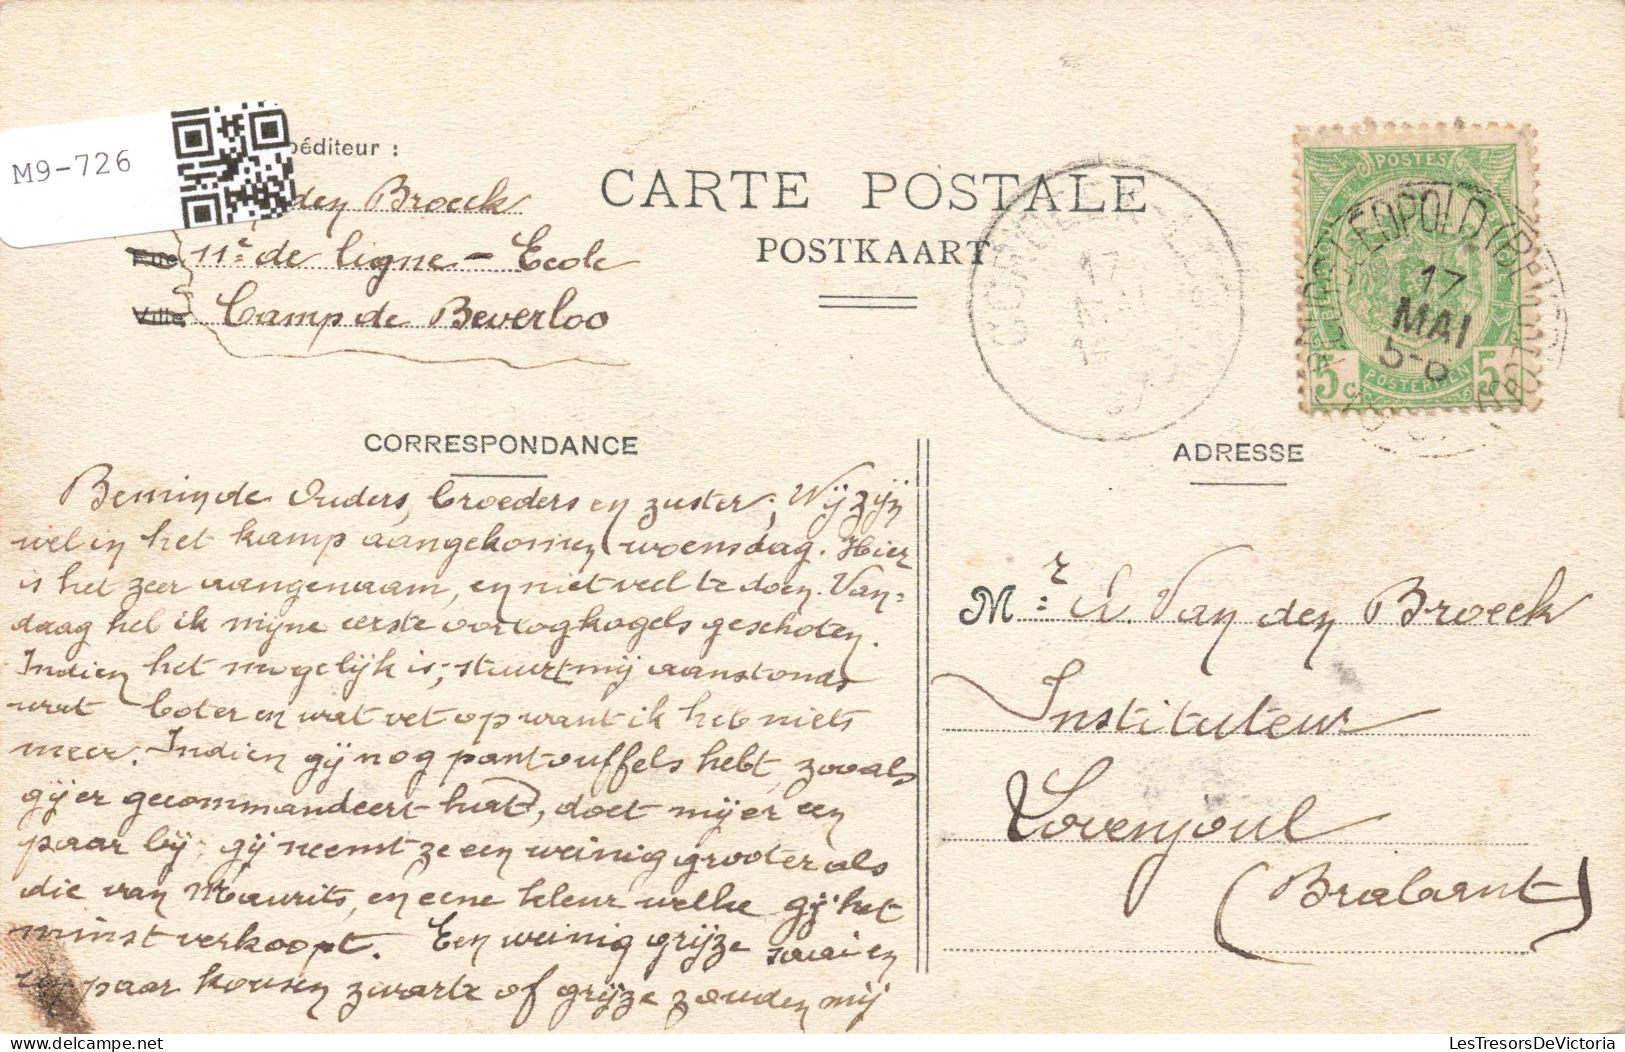 M9-726
péditeur :
den Broeck
Rue 11e de ligne - Ecole
Ville Camp de Beverloo
CARTE POSTALE
POSTKAART
POSTES
BOURG-LEOPOLD
17
MAI
5-6
5c POSTERIJEN 5c
17
CORRESPONDANCE
Beminde Ouders, broeders en zuster; Wij zijn
wel in het kamp aangekomen woensdag. Hier
is het zeer aangenaam, en niet veel te doen. Van=
daag heb ik mijne eerste oorlogkogels geschoten.
Indien het mogelijk is; stuurt mij aanstonds
wat boter en wat vet op want ik heb niets
meer. Indien gij nog pantouffels hebt, zooals
gij er gecommandeert hebt, doet mij er een
paar bij; gij neemt ze een weinig grooter als
die van Maurits, en eene kleur welke gij het
minst verkoopt. Een weinig grijze saai en
een paar kousen zwarte of grijze zouden mij
ADRESSE
Mr: A. Van den Broeck
Instituteur
Lovenjoul
(Brabant)
LesTresorsDeVictoria.com